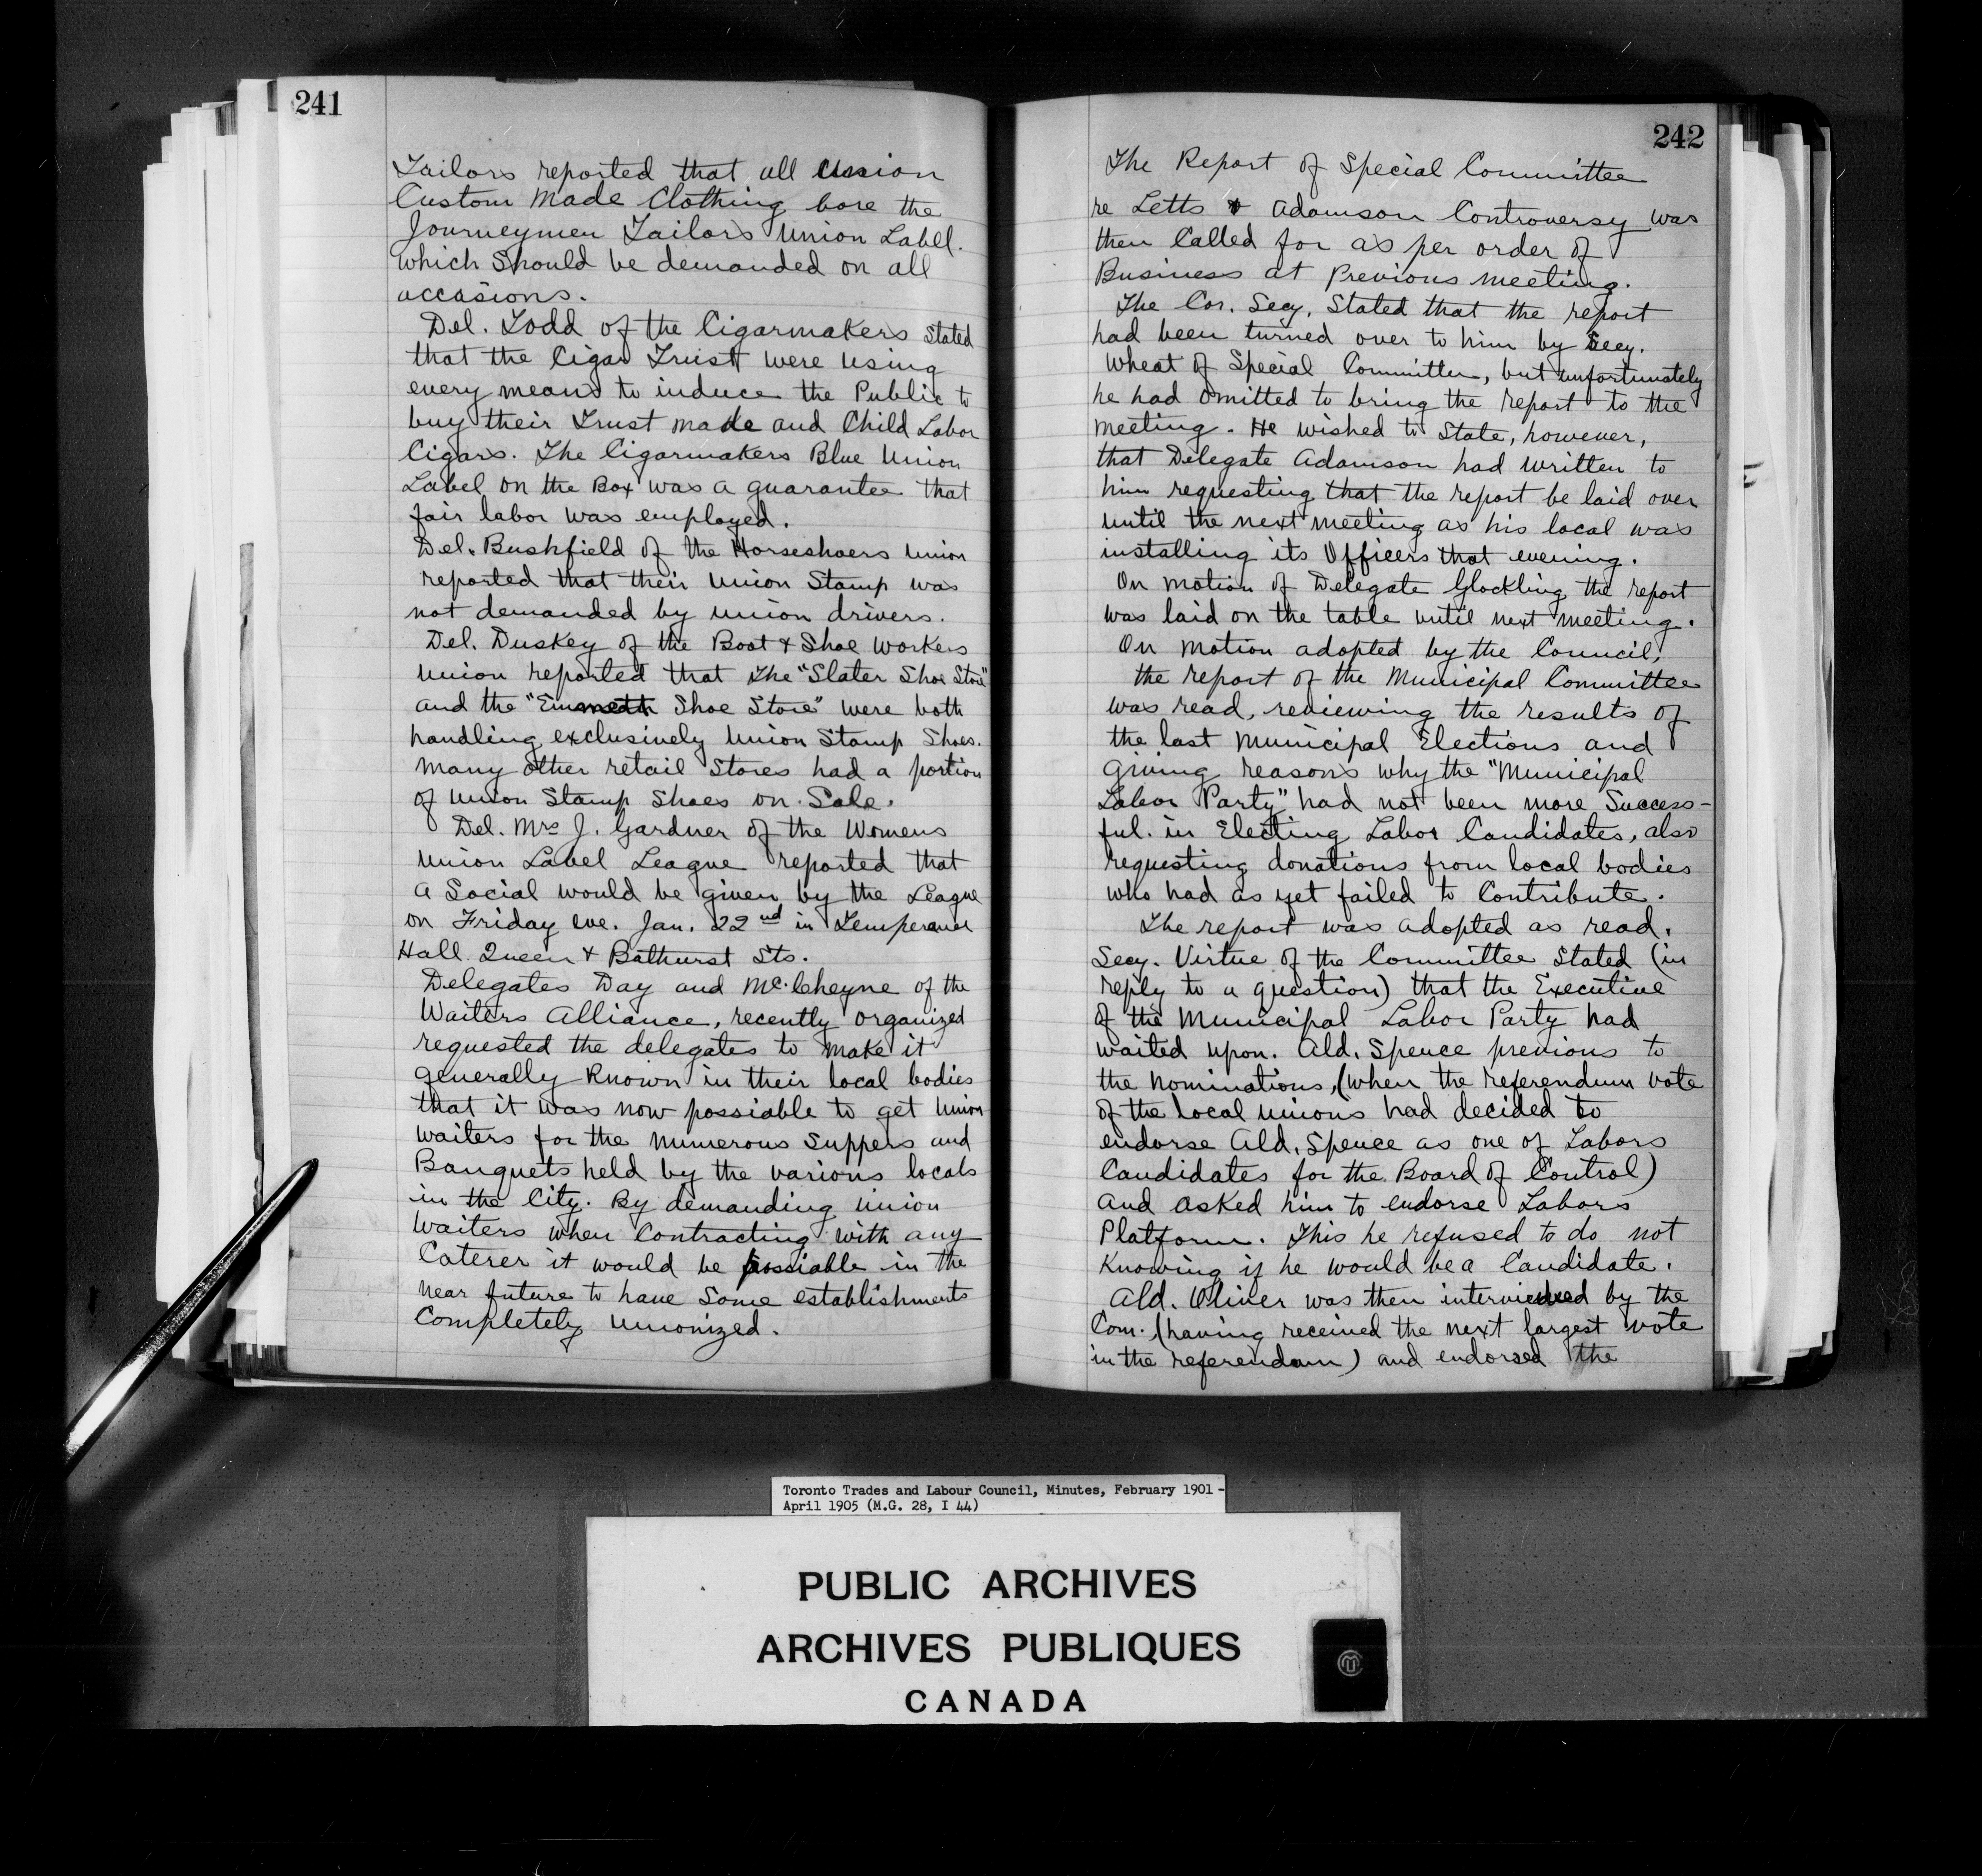 241
Tailors reported that all Union
Custom Made Clothing bore the
Journeymen Tailors Union Label.
which Should be demanded on all
occasions.
Del. Todd of the Cigarmakers Stated
that the Cigar Trust were using
every means to induce the Public to
buy their Trust made and Child Labor
Cigars. The Cigarmakers Blue Union
Label on the Box was a guarantee that
fair labor was employed.
Del. Bushfield of the Horseshoers Union
reported that their Union Stamp was
not demanded by union drivers.
Del. Duskey of the Boot & Shoe Workers
Union reported that the "Slater Shoe Store"
and the " Shoe Store" were both
handling exclusively Union Stamp Shoes.
Many other retail Stores had a portion
of Union Stamp Shoes on Sale.
Del. Mrs J. Gardner of the Womens
Union Label League reported that
a Social would be given by the League
on Friday eve. Jan. 22nd in Temperance
Hall Queen & Bathurst Sts.
Delegates Day and McCheyne of the
Waiters Alliance, recently organized
requested the delegates to make it
generally Known in their local bodies
that it was now possiable to get Union
waiters for the numerous Suppers and
Banquets held by the various locals
in the City. By demanding Union
Waiters when Contracting with any
Caterer it would be possiable in the
near future to have Some establishments
Completely Unionized.
242
The Report of Special Committee
re Letts & Adamson Controversy was
then Called for as per order of
Business at Previous meeting.
The Cor. Secy. Stated that the report
had been turned over to him by Secy.
Wheat of Special Committee, but unfortunately
he had omitted to bring the report to the
meeting. He wished to State, however,
that Delegate Adamson had written to
him requesting that the report be laid over
until the next meeting as his local was
installing its Officers that evening.
On motion of Delegate Glockling the report
was laid on the table until next meeting.
On motion adopted by the Council,
the report of the Municipal Committee
was read, reviewing the results of
the last Municipal Elections and
giving reasons why the "Municipal
Labor Party" had not been more Success-
ful. in Electing Labor Candidates, also
requesting donations from local bodies
who had as yet failed to Contribute.
The report was adopted as read.
Secy. Virtue of the Committee Stated (in
reply to a question) that the Executive
of the Municipal Labor Party had
waited upon. Ald. Spence previous to
the nominations, (when the referendum vote
of the local unions had decided to
endorse Ald. Spence as one of Labors
Candidates for the Board of Control)
and asked him to endorse Labors
Platform. This he refused to do not
Knowing if he would be a Candidate.
Ald. Oliver was then interviewed by the
Com. (having received the next largest vote
in the referendum) and endorsed the
Toronto Trades and Labour Council, Minutes, February 1901 -
April 1905 (M.G. 28, I 44)
PUBLIC ARCHIVES
ARCHIVES PUBLIQUES
CANADA